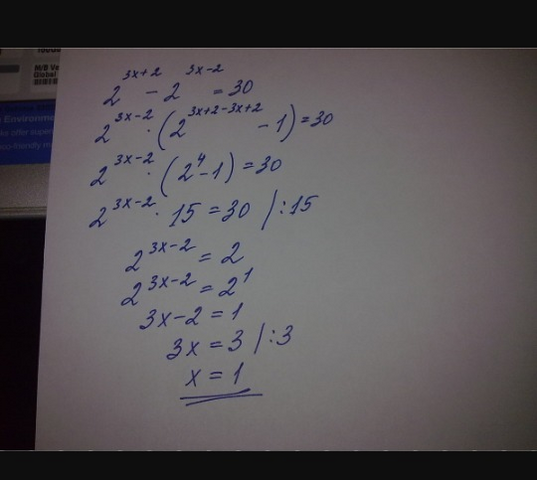 100GB
M/B Ve
Global
Environme
ks offer super
eo-friendly m
2^{3x+2} - 2^{3x-2} = 30
2^{3x-2} · (2^{3x+2-3x+2} - 1) = 30
2^{3x-2} · (2^4 - 1) = 30
2^{3x-2} · 15 = 30 / : 15
2^{3x-2} = 2
2^{3x-2} = 2^1
3x - 2 = 1
3x = 3 / : 3
x = 1